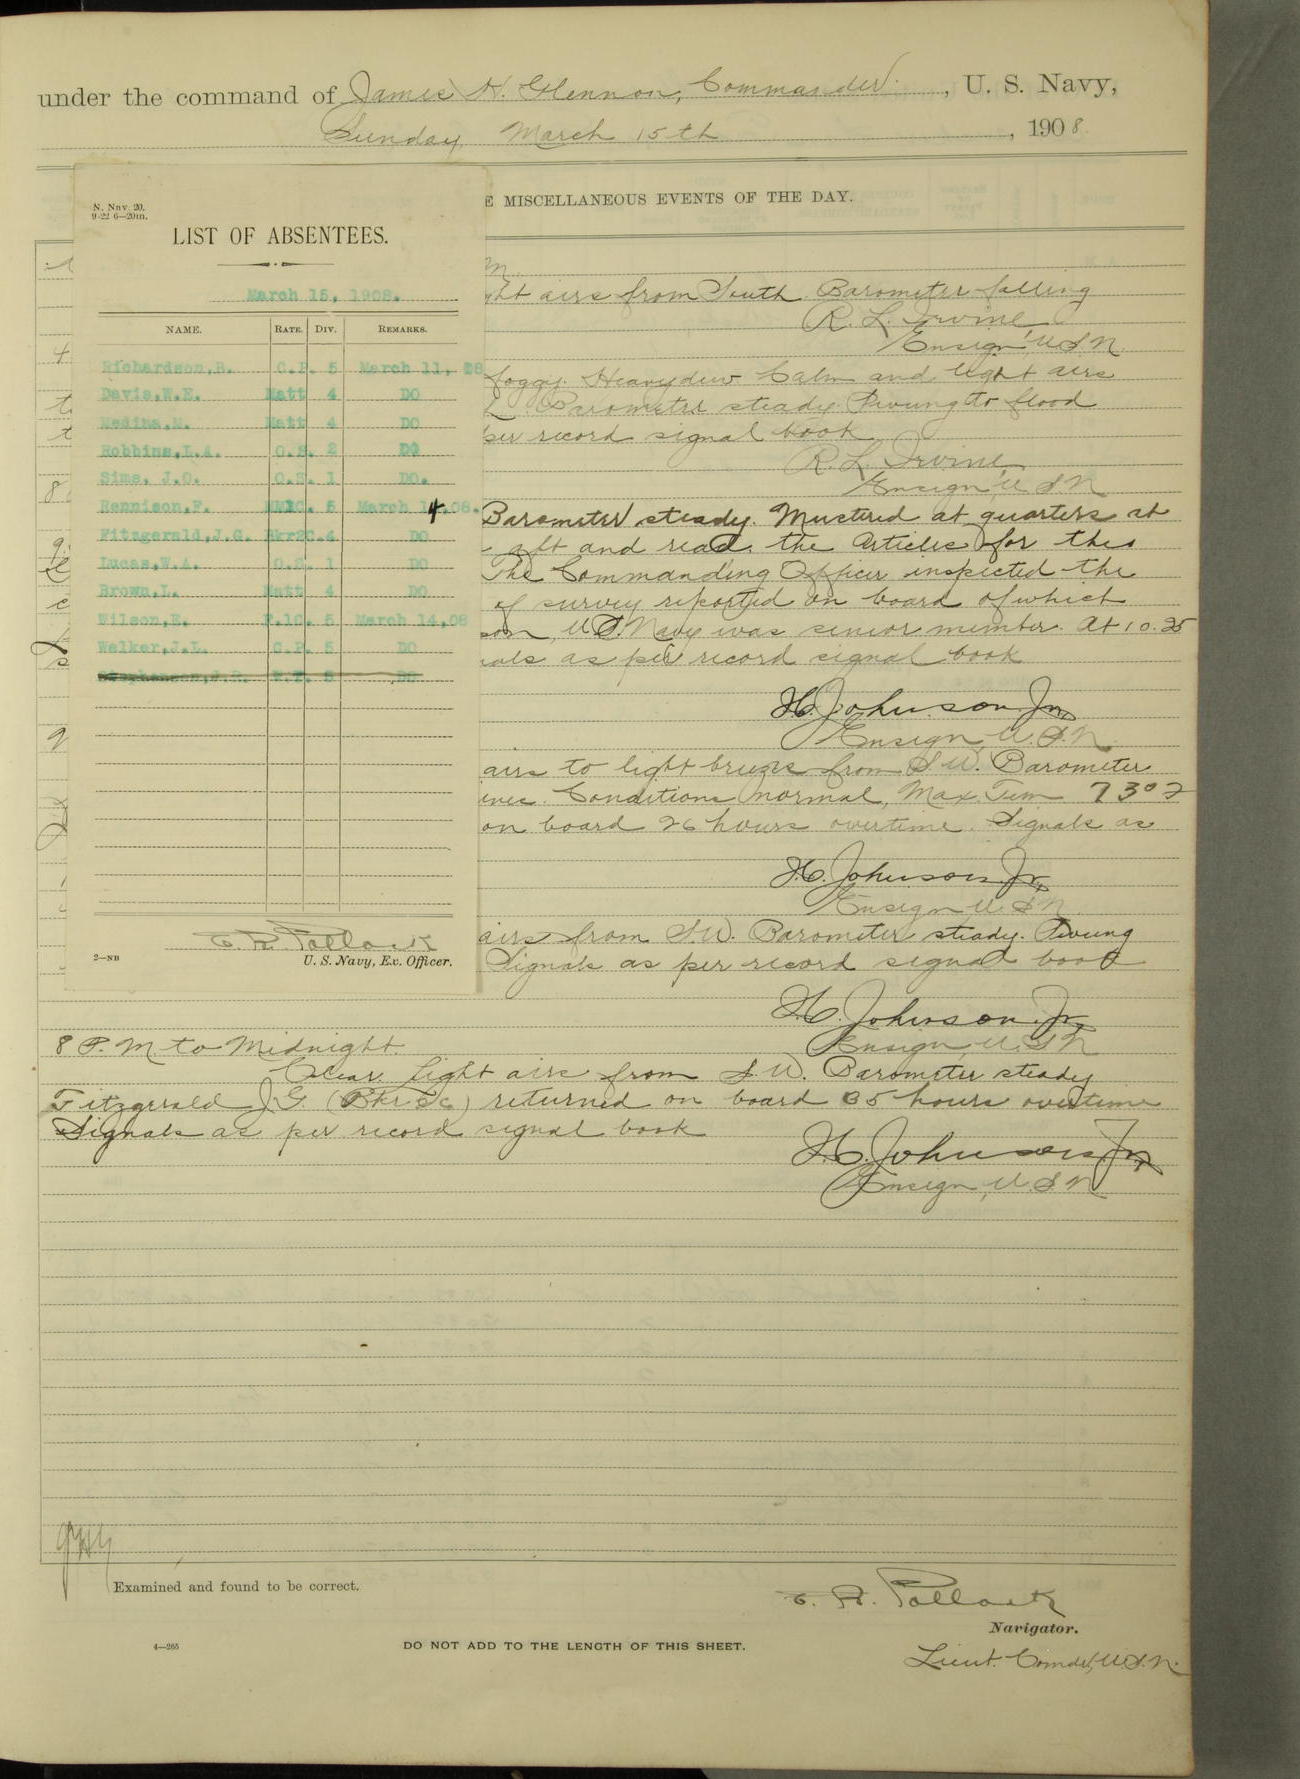 under the command of James H. Glennon, Commander, U. S. Navy,
Sunday, March 15th, 1908.
E MISCELLANEOUS EVENTS OF THE DAY.
N. Nav. 20.
9-22 6—20m.
LIST OF ABSENTEES.
March 15, 1908.
NAME. RATE. DIV. REMARKS.
Richardson,B. C.P. 5 March 11, 08
Davis,W.E. Matt 4 DO
Medina,M. Matt 4 DO
Robbins,L.A. O.S. 2 DO
Sims, J.O. O.S. 1 DO.
Rennison,F. 5 March 14.08.
Fitzgerald,J.G. Bkr2C.4 DO
Lucas,W.A. O.S. 1 DO
Brown,L. Matt 4 DO
Wilson,E. F.1C. 5 March 14,08
Walker,J.L. C.P. 5 DO
Stephenson, 5 DO
C. R. Pollock
2—NB U. S. Navy, Ex. Officer.
M.
ght airs from South. Barometer falling
R. L. Irvine
Ensign, U.S.N.
foggy. Heavy dew. Calm and light airs
Barometer steady. Swung to flood
per record signal book
R. L. Irvine
Ensign, U.S.N.
Barometer steady. Mustered at quarters at
aft and read the Articles for the
The Commanding Officer inspected the
of survey reported on board of which
son, U.S. Navy was senior member. At 10.25
nals as per record signal book
H. Johnson Jr.
Ensign, U.S.N.
airs to light breezes from S.W. Barometer
Conditions normal, Max. Tem 73° 2
on board 26 hours overtime. Signals as
H. Johnson Jr.
Ensign U.S.N.
airs from S.W. Barometer steady. Swung
Signals as per record signal book
H. Johnson Jr.
Ensign, U.S.N.
8 P.M. to Midnight.
Clear. Light airs from S.W. Barometer steady
Fitzgerald J.G. (Bkr 2c) returned on board 35 hours overtime
Signals as per record signal book
H. Johnson Jr.
Ensign, U.S.N.
Examined and found to be correct.
C. R. Pollock
Navigator.
4—265 DO NOT ADD TO THE LENGTH OF THIS SHEET.
Lieut. Comdr, U.S.N.